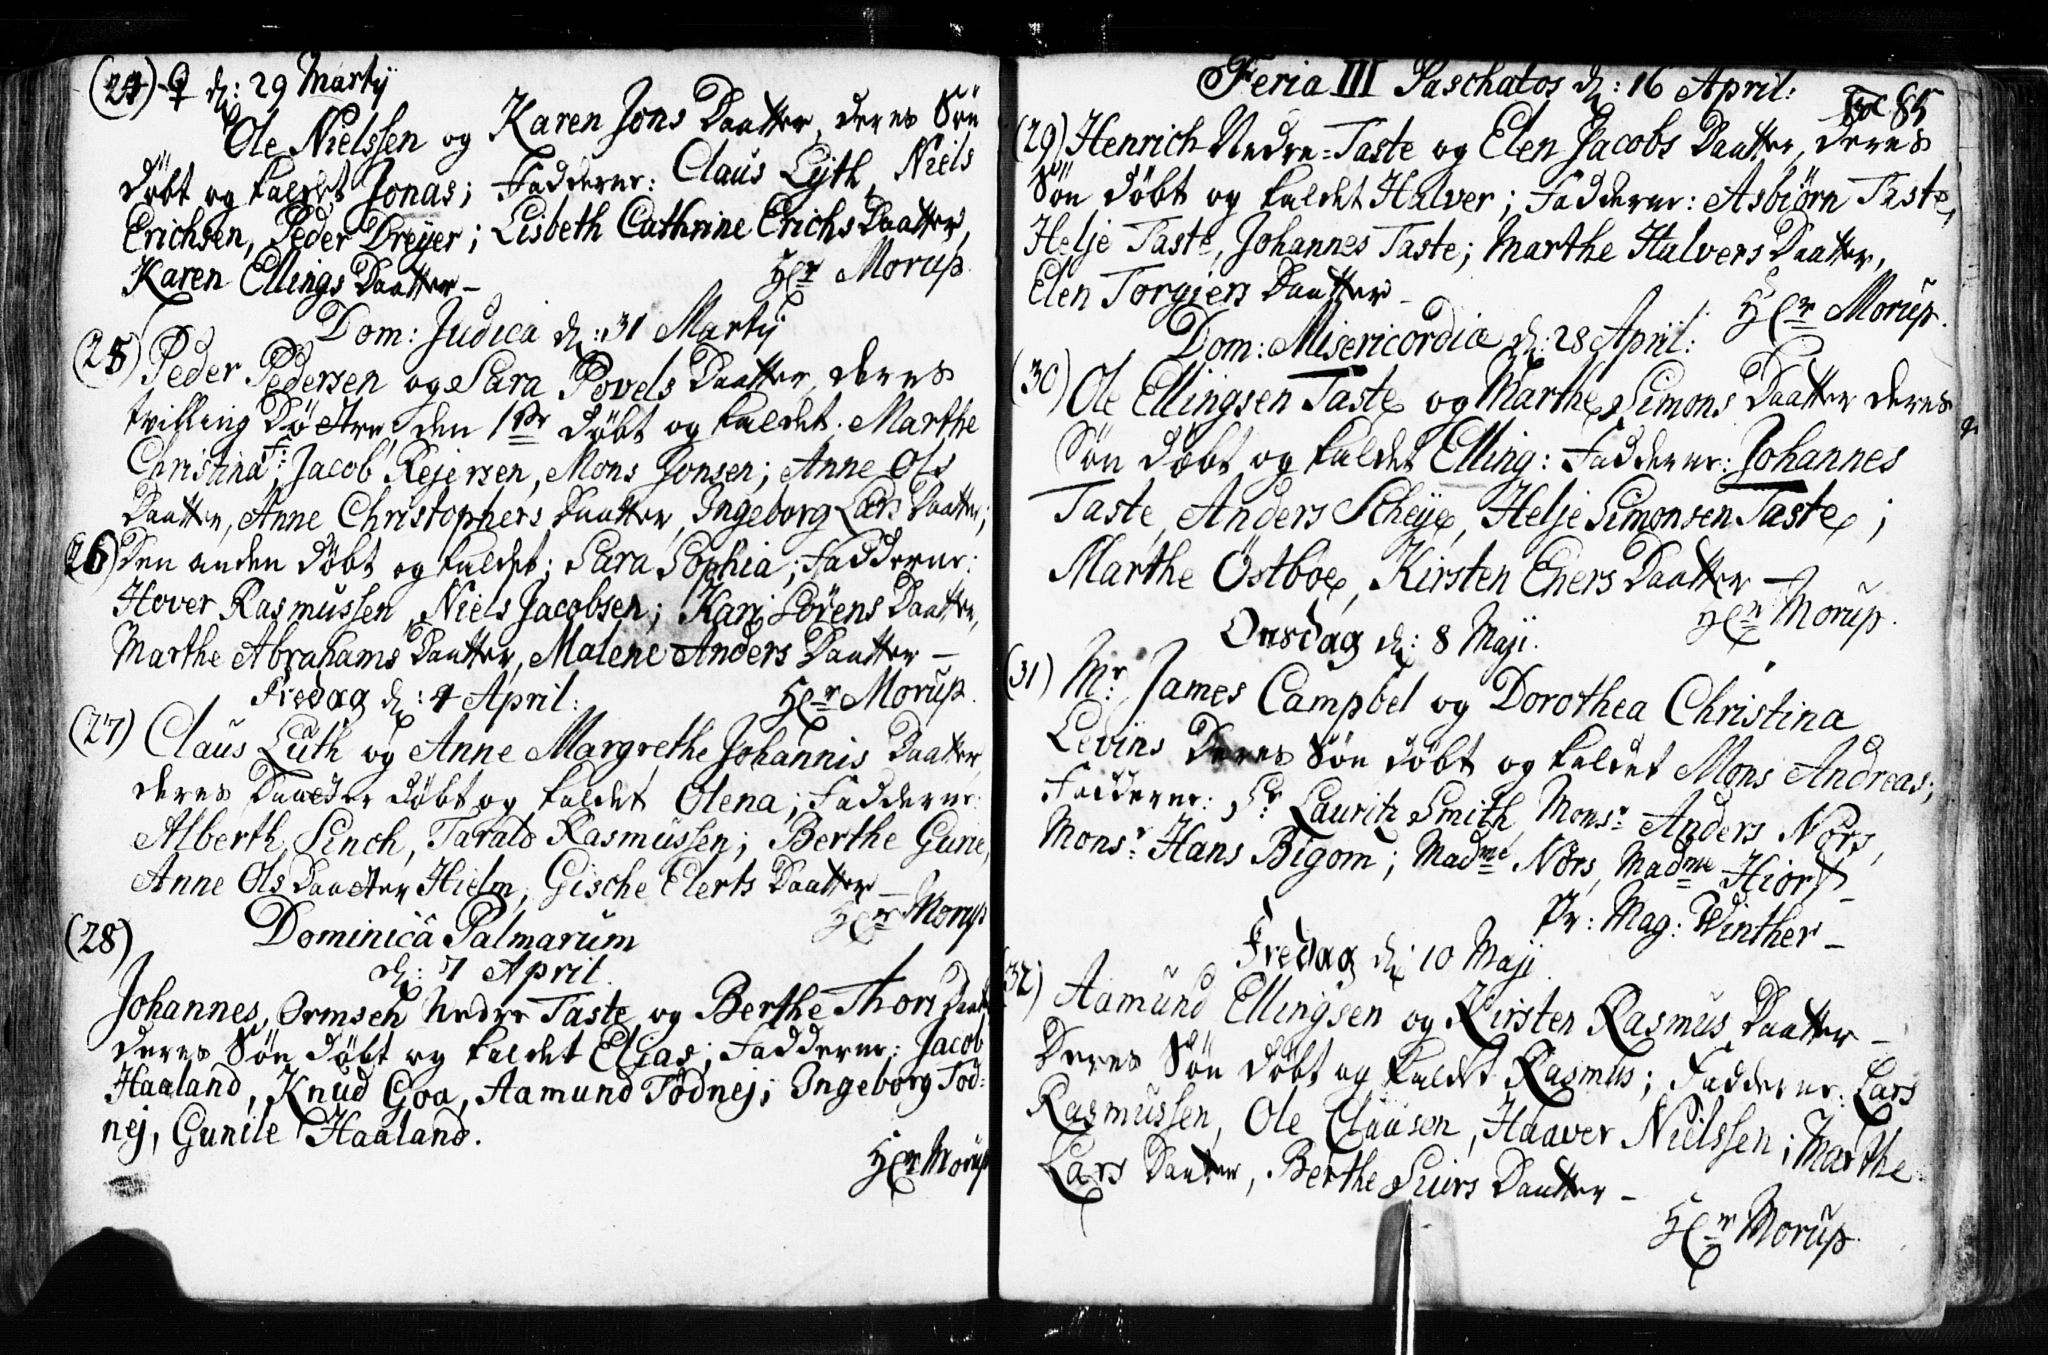 (24) ♀ d: 29 Martij
Ole Nielssen og Karen Jons Daatter, deres Søn
døbt og kaldet Jonas; Fadderne: Claus Lyth, Niels
Erichsen, Peder Dreyer; Lisbeth Cathrine Erichs Daatter,
Karen Ellings Daatter –
Hr Morup.
Dom: Judica d: 31 Martij
(25) Peder Pedersen og Sara Povels Daatter, deres
tvilling Døttre, den 1ste døbt og kaldet. Marthe
Christina, F: Jacob Rejersen, Mons Jonsen; Anne Ols
Daatter, Anne Christophers Daatter, Ingeborg Lars Daatter;
(26) Den anden døbt og kaldet; Sara Sophia; Fadderne:
Hover Rasmussen, Niels Jacobsen; Kari Sörens Daatter,
Marthe Abrahams Daatter, Malene Anders Daatter –
Hr Morup.
Fredag d: 4 April:
(27) Claus Luth og Anne Margrethe Johannis Daatter,
deres Daatter døbt og kaldet Olena; Fadderne:
Alberth Sinch, Tarald Rasmussen; Berthe Gurie,
Anne Ols Daatter Hielm, Gische Elerts Daatter –
Hr Morup
(28) Dominica Palmarum
d: 7 April.
Johannes Ormsen Nedre Taste og Berthe Thors Daat
deres Søn døbt og kaldet Elias; Fadderne: Jacob
Haaland, Knud Goa, Aamund Tødnej; Ingeborg Tød=
nej, Gunile Haaland.
Hr Morup
Feria III Paschatos d: 16 April:
85
(29) Henrich Nedre=Taste og Elen Jacobs Daatter, deres
Søn døbt og kaldet Halver; Fadderne: Asbiørn Taste,
Helje Taste, Johannes Taste; Marthe Halvers Daatter,
Elen Torgiers Daatter –
Hr Morup.
Dom: Misericordiæ d: 28 April:
(30) Ole Ellingsen Taste og Marthe Simons Daatter deres
Søn døbt og kaldet Elling: Fadderne: Johannes
Taste, Anders Scheye, Helje Simonsen Taste;
Marthe Östboe, Kirsten Eners Daatter –
Hr Morup.
Onsdag d: 8 Maji.
(31) Mr James Campbel og Dorothea Christina
Levins deres Søn døbt og kaldet Mons Andreas;
Fadderne: Sr Lauritz Smith, Monsr Anders Nørs,
Monsr: Hans Bigom; Madme Nørs, Madme Hiort –
Pr: Mag: Winther –
Fredag d: 10 Maji
(32) Aamund Ellingsen og Kirsten Rasmus Daatter –
deres Søn døbt og kaldet Rasmus; Fadderne: Lars
Rasmussen, Ole Clausen, Haaver Nielssen; Marthe
Lars Daatter, Berthe Siurs Daatter –
Hr Morup.